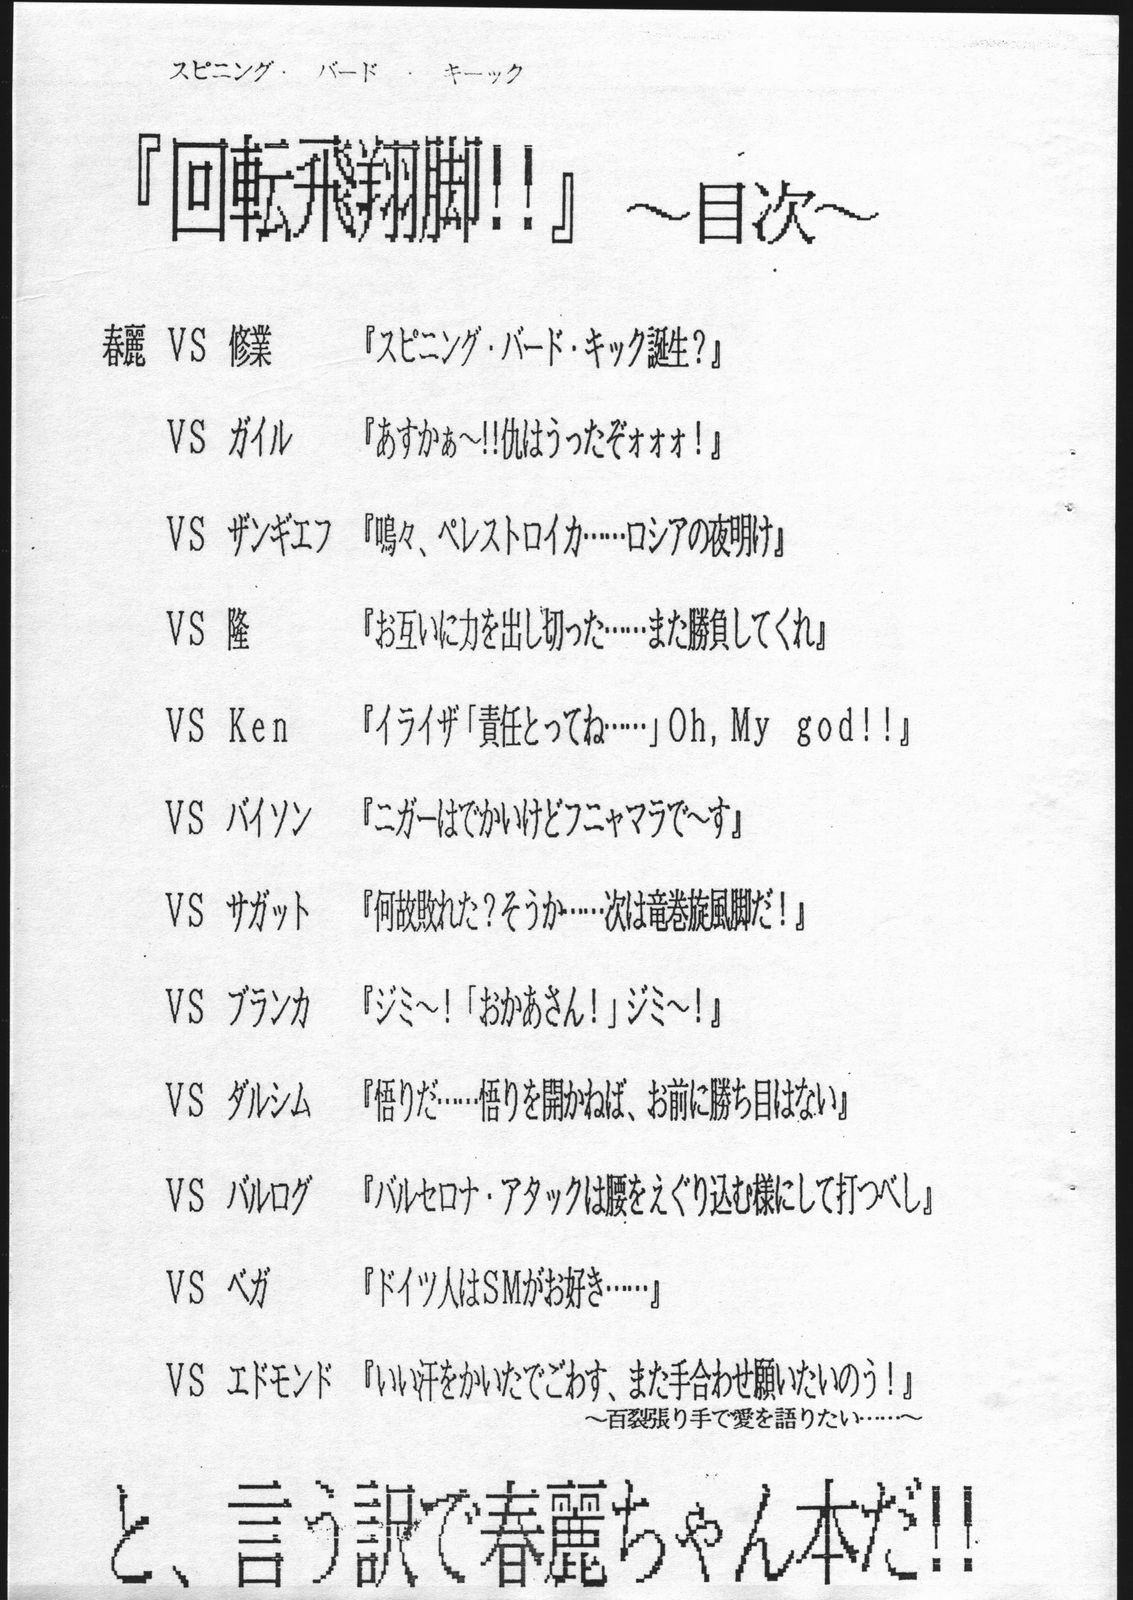 スピニング・ バード ・ キーック
『回転飛翔脚!!』 ～目次～
春麗 VS 修業 『スピニング・バード・キック誕生？』
VS ガイル 『あすかぁ～!!仇はうったぞォォォ！』
VS ザンギエフ 『鳴々、ペレストロイカ……ロシアの夜明け』
VS 隆 『お互いに力を出し切った……また勝負してくれ』
VS Ken 『イライザ「責任とってね……」Oh, My god!!』
VS バイソン 『ニガーはでかいけどフニャマラで～す』
VS サガット 『何故敗れた？そうか……次は竜巻旋風脚だ！』
VS ブランカ 『ジミ～！「おかあさん！」ジミ～！』
VS ダルシム 『悟りだ……悟りを開かねば、お前に勝ち目はない』
VS バルログ 『バルセロナ・アタックは腰をえぐり込む様にして打つべし』
VS ベガ 『ドイツ人はSMがお好き……』
VS エドモンド 『いい汗をかいたでごわす、また手合わせ願いたいのう！』
～百裂張り手で愛を語りたい……～
と、言う訳で春麗ちゃん本だ!!